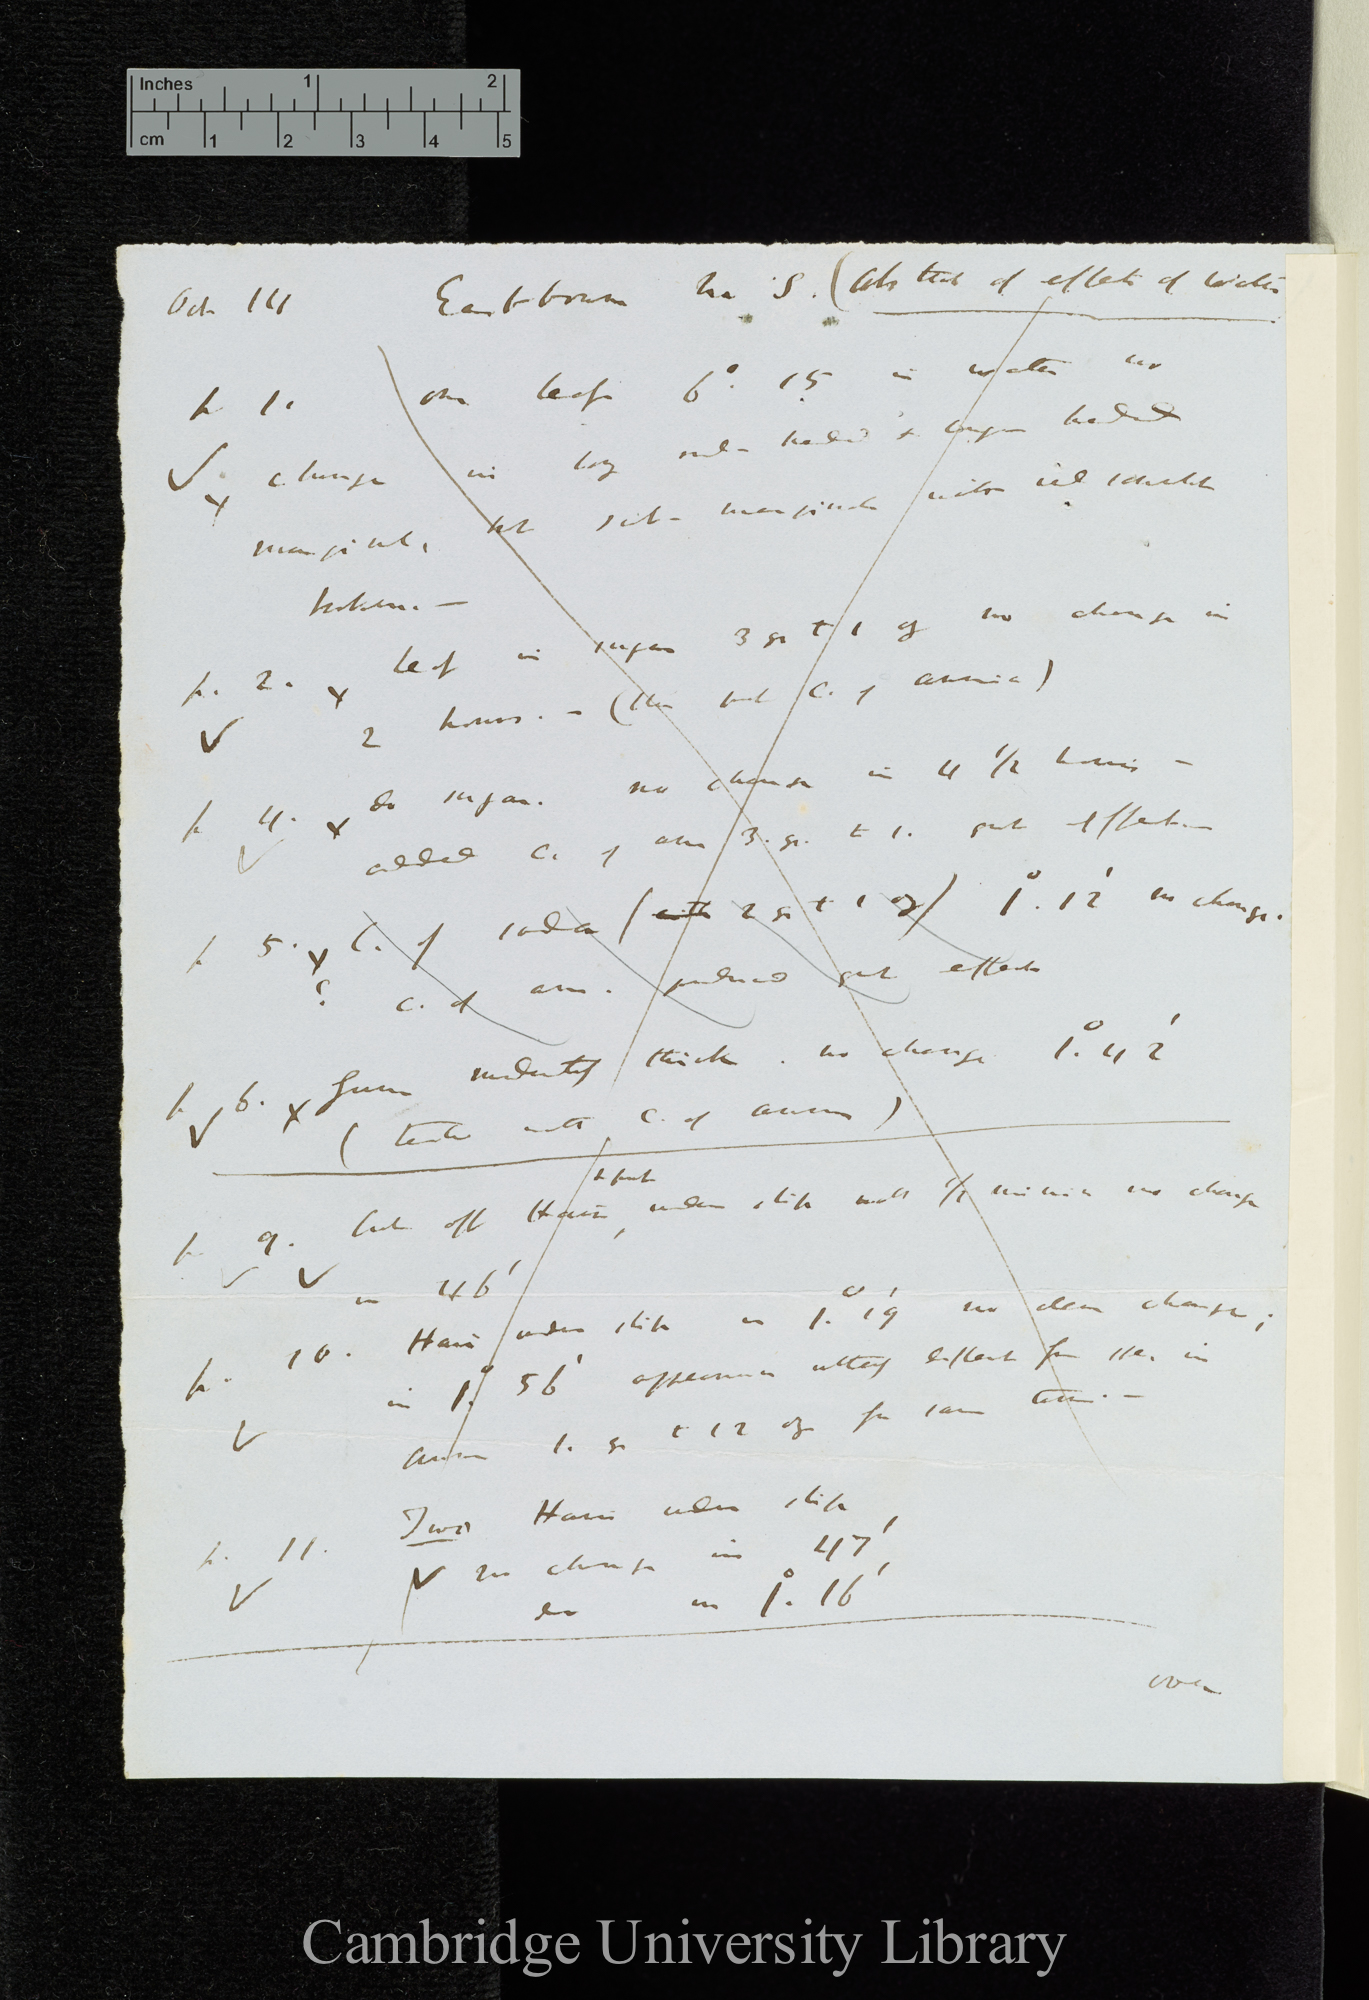 Inches 1 2
cm 1 2 3 4 5
Oct 14 Eastbourne No 5. (Abstract of effects of Water
p 1. one leaf 6°. 15 in water no
change in long red-headed & longer headed
marginals, but sub-marginals
broken.—
p. 2. leaf in sugar 3 gr to 1 oz no change in
2 hours. — (then put C. of ammonia)
p 4. do sugar. no change in 4 1/2 hours —
added C. of am 3. gr. to 1. great effect—
p 5. C. of soda (with 2 gr to 1 oz) 1°. 12' no change.
? C. of am. produced great effect
p 6. Gum moderately thick. no change 1°. 42'
(tested with C. of ammon)
& put
p 9. Cut off Hairs, under slip with 1/2 minim no change
in 46'
p. 10. Hair under slip in 1°. 19' no clear change;
in 1°. 56' appearance utterly different from in
ammon 1. gr to 12 oz for same time.—
p. 11. Two Hairs under slip
no change in 47'
do in 1°. 16'
over
Cambridge University Library